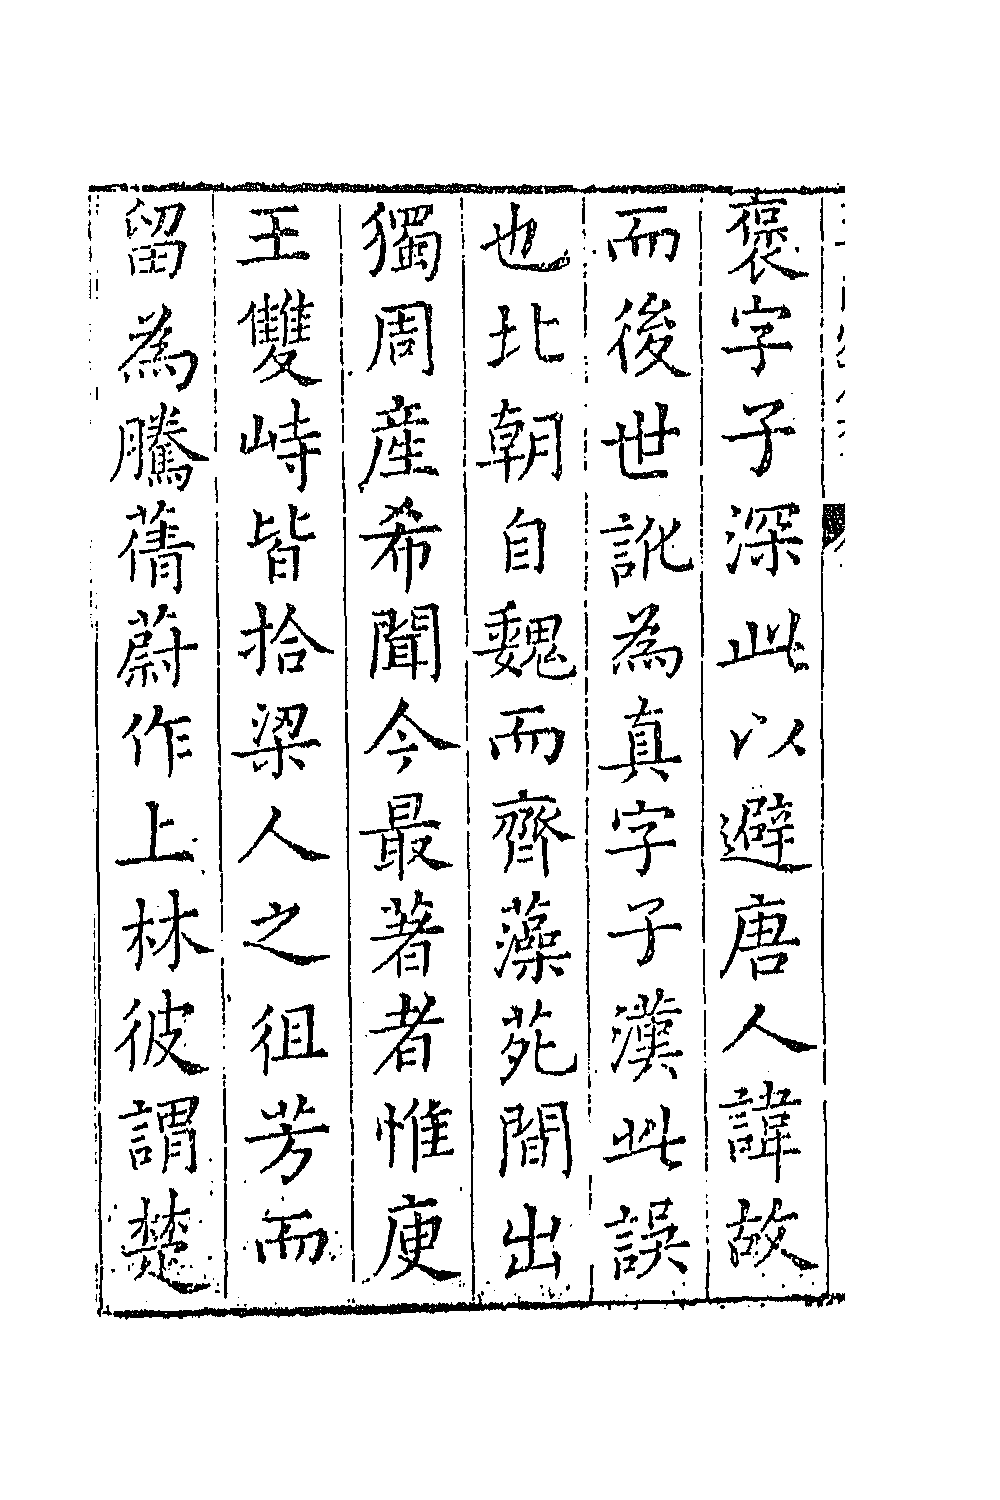 褒字子深此以避唐人諱故
而後世訛為真字子漢此誤
也北朝自魏而齊藻苑間出
獨周產希聞今最著者惟庾
王雙峙皆拾梁人之徂芳而
留為騰蒨蔚作上林彼謂楚